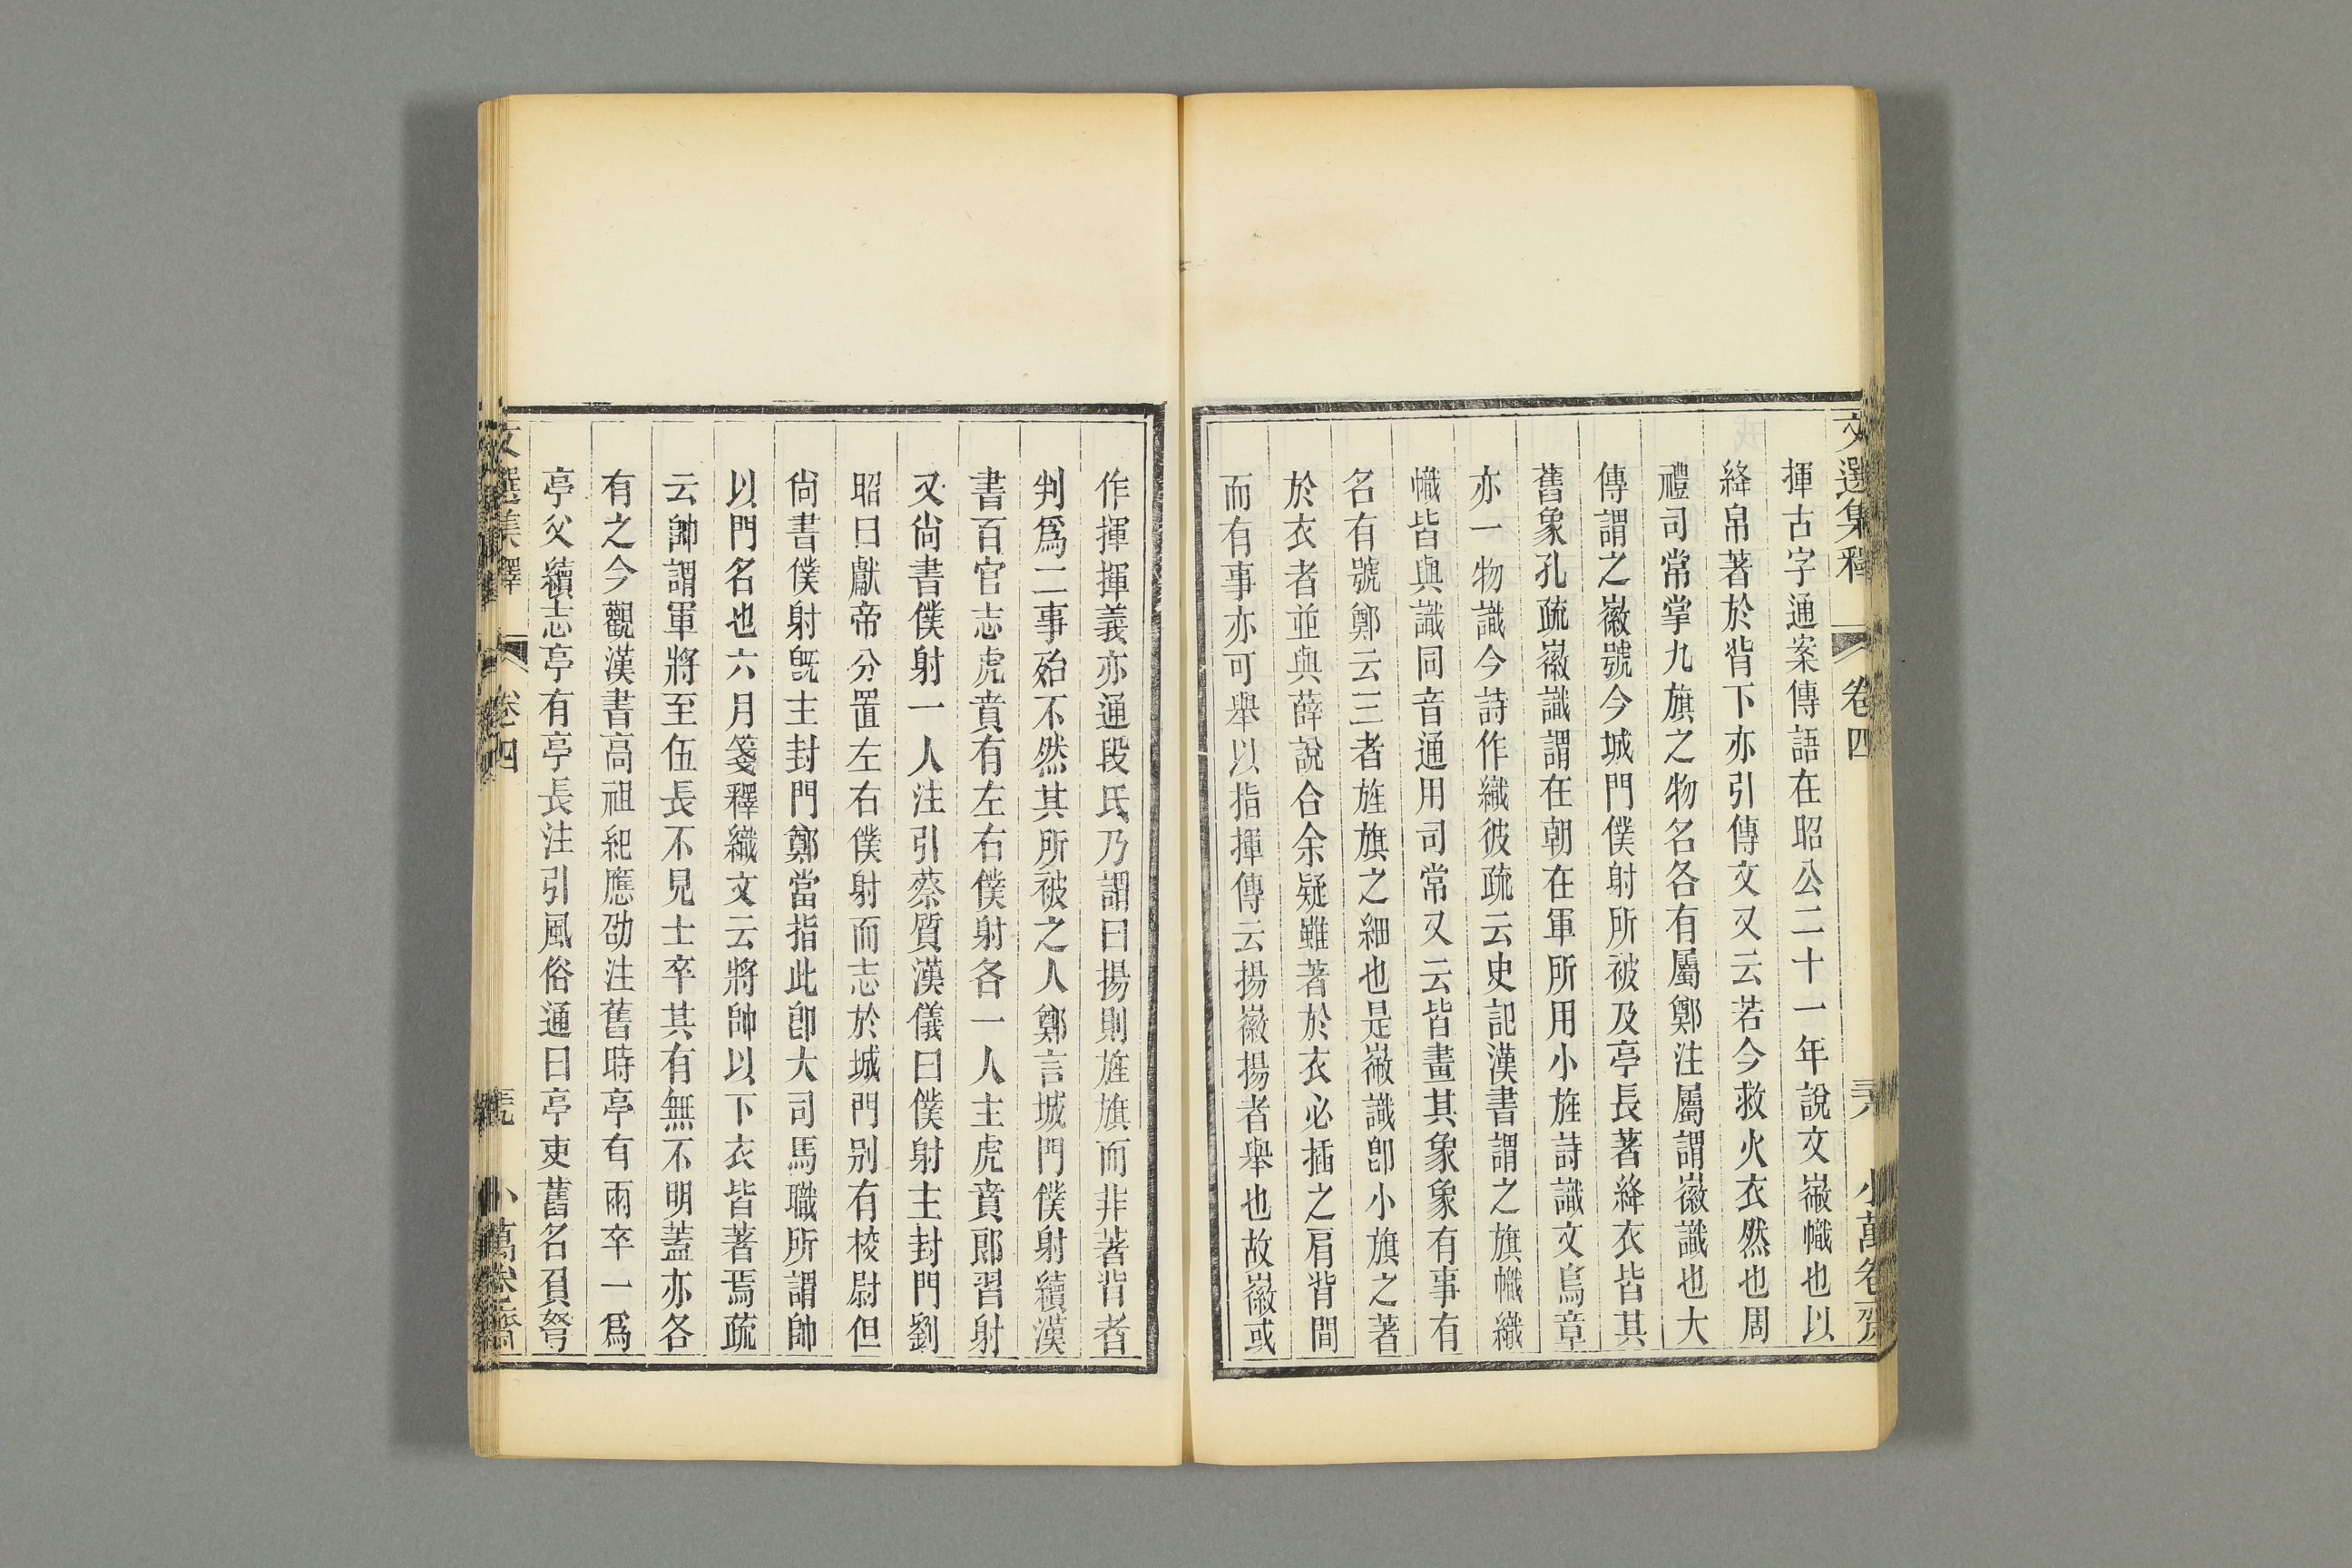 文選集釋 卷四 小萬卷齋
揮古字通案傳語在昭公二十一年說文㣲幟也以
絳帛著於背下亦引傳文又云若今救火衣然也周
禮司常掌九旗之物名各有屬鄭注屬謂徽識也大
傳謂之徽號今城門僕射所被及亭長著絳衣皆其
舊象孔疏徽識謂在朝在軍所用小旌詩識文鳥章
亦一物識今詩作織彼疏云史記漢書謂之旗幟織
幟皆與識同音通用司常又云皆畫其象象有事有
名有號鄭云三者旌旗之細也是㣲識卽小旗之著
於衣者並與薛說合余疑雖著於衣必插之肩背間
而有事亦可舉以指揮傳云揚徽揚者舉也故徽或
作揮揮義亦通段氏乃謂曰揚則旌旗而非著背者
判爲二事殆不然其所被之人鄭言城門僕射續漢
書百官志虎賁有左右僕射各一人主虎賁郎習射
又尙書僕射一人注引蔡質漢儀曰僕射主封門劉
昭曰獻帝分置左右僕射而志於城門別有校尉但
尙書僕射旣主封門鄭當指此卽大司馬職所謂帥
以門名也六月箋釋織文云將帥以下衣皆著焉疏
云帥謂軍將至伍長不見士卒其有無不明蓋亦各
有之今觀漢書高祖紀應劭注舊時亭有兩卒一爲
亭父續志亭有亭長注引風俗通曰亭吏舊名負弩
文選集釋 卷四 小萬卷齋